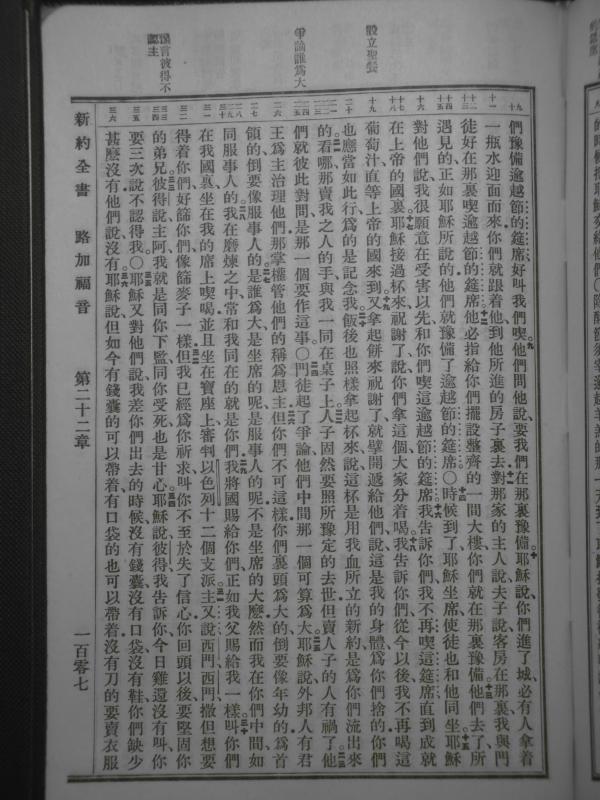 設立聖餐
爭論誰為大
預言彼得不
認主
們豫備逾越節的筵席好叫我們喫他們問他說、要我們在那裏豫備耶穌說你們進了城必有人拿着
一瓶水迎面而來你們就跟着他到他所進的房子裏去對那家的主人說夫子說客房在那裏我與門
徒好在那裏喫逾越節的筵席他必指給你們擺設整齊的一間大樓你們就在那裏豫備他們去了所
遇見的正如耶穌所說的他們就豫備了逾越節的筵席○時候到了耶穌坐席使徒也和他同坐耶穌
對他們說我很願意在受害以先和你們喫這逾越節的筵席我告訴你們我不再喫這筵席直到成就
在上帝的國裏耶穌接過杯來祝謝了說你們拿這個大家分着喝我告訴你們從今以後我不再喝這
葡萄汁直等上帝的國來到又拿起餅來祝謝了就擘開遞給他們說這是我的身體為你們捨的你們
也應當如此行為的是記念我飯後也照樣拿起杯來說這杯是用我血所立的新約是為你們流出來
的看哪那賣我之人的手與我一同在桌子上人子固然要照所豫定的去世但賣人子的人有禍了他
們就彼此對問是那一個要作這事○門徒起了爭論他們中間那一個可算為大耶穌說外邦人有君
王為主治理他們那掌權管他們的稱為恩主但你們不可這樣你們裏頭為大的倒要像年幼的為首
領的倒要像服事人的是誰為大是坐席的呢是服事人的呢不是坐席的大麼然而我在你們中間如
同服事人的我在磨煉之中常和我同在的就是你們我將國賜給你們正如我父賜給我一樣叫你們
在我國裏坐在我的席上喫喝並且坐在寶座上審判以色列十二個支派主又說西門西門撒但想要
得着你們好篩你們像篩麥子一樣但我已經為你祈求叫你不至於失了信心你回頭以後要堅固你
的弟兄彼得說主阿我就是同你下監同你受死也是甘心耶穌說彼得我告訴你今日雞還沒有叫你
要三次說不認得我○耶穌又對他們說我差你們出去的時候沒有錢囊沒有口袋沒有鞋你們缺少
甚麼沒有他們說沒有耶穌說但如今有錢囊的可以帶着有口袋的也可以帶着沒有刀的要賣衣服
新約全書 路加福音 第二十二章 一百零七